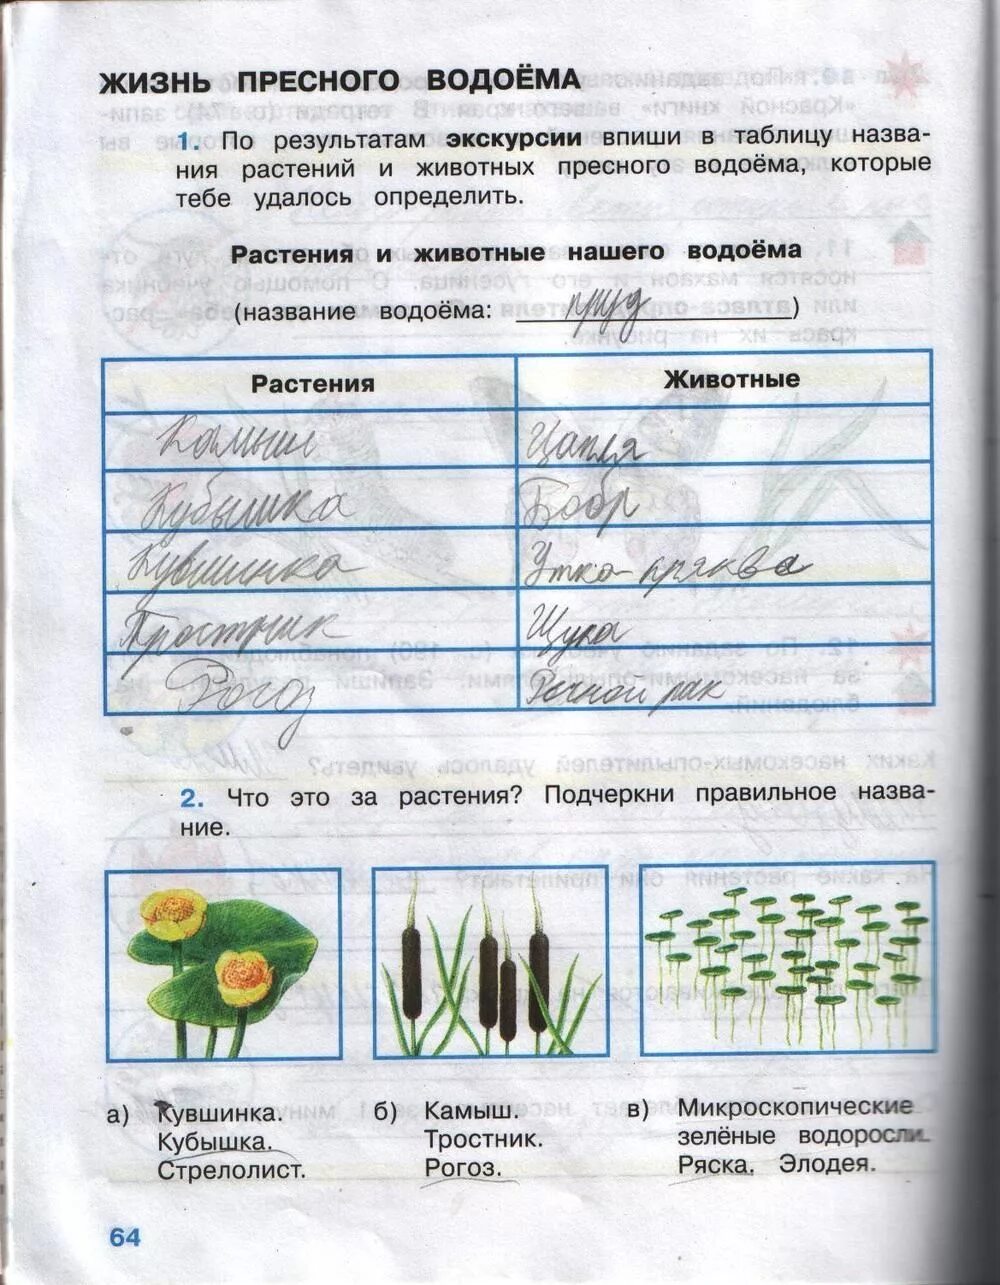 ЖИЗНЬ ПРЕСНОГО ВОДОЁМА
1. По результатам экскурсии впиши в таблицу назва-
ния растений и животных пресного водоёма, которые
тебе удалось определить.
Растения и животные нашего водоёма
(название водоёма: пруд)
Растения Животные
Камыш Цапля
Кубышка Бобр
Кувшинка Утка-кряква
Тростник Щука
Рогоз Речной рак
2. Что это за растения? Подчеркни правильное назва-
ние.
а) Кувшинка. б) Камыш. в) Микроскопические
Кубышка. Тростник. зелёные водоросли.
Стрелолист. Рогоз. Ряска. Элодея.
64